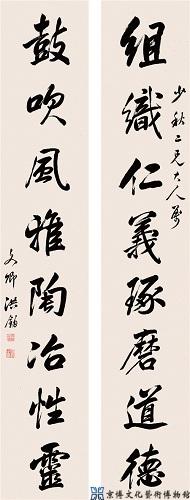 少秋二兄大人屬
組織仁義琢磨道德
鼓吹風雅陶冶性靈
文卿洪鈞
京博文化藝術博物館